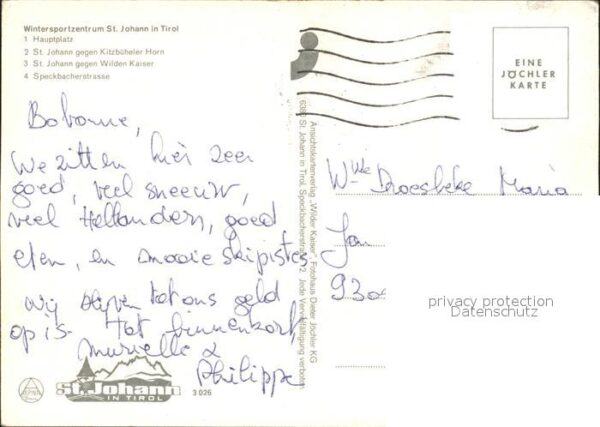 Wintersportzentrum St. Johann in Tirol
1 Hauptplatz
2 St. Johann gegen Kitzbüheler Horn
3 St. Johann gegen Wilden Kaiser
4 Speckbacherstrasse
EINE
JÖCHLER
KARTE
Bobonne,
We zitten hier zeer
goed, veel sneeuw,
veel Hollanders, goed
eten, en mooie skipistes
Wij blijven tot ons geld
op is. Tot binnenkort
Murielle &
Philippe
Ansichtskartenverlag „Wilder Kaiser", Fotohaus Dieter Jöchler KG
6380 St. Johann in Tirol, Speckbacherstraße 2. Jede Vervielfältigung verboten
Wwe Droesbeke Maria
930
privacy protection
Datenschutz
St. Johann
IN TIROL
3 026